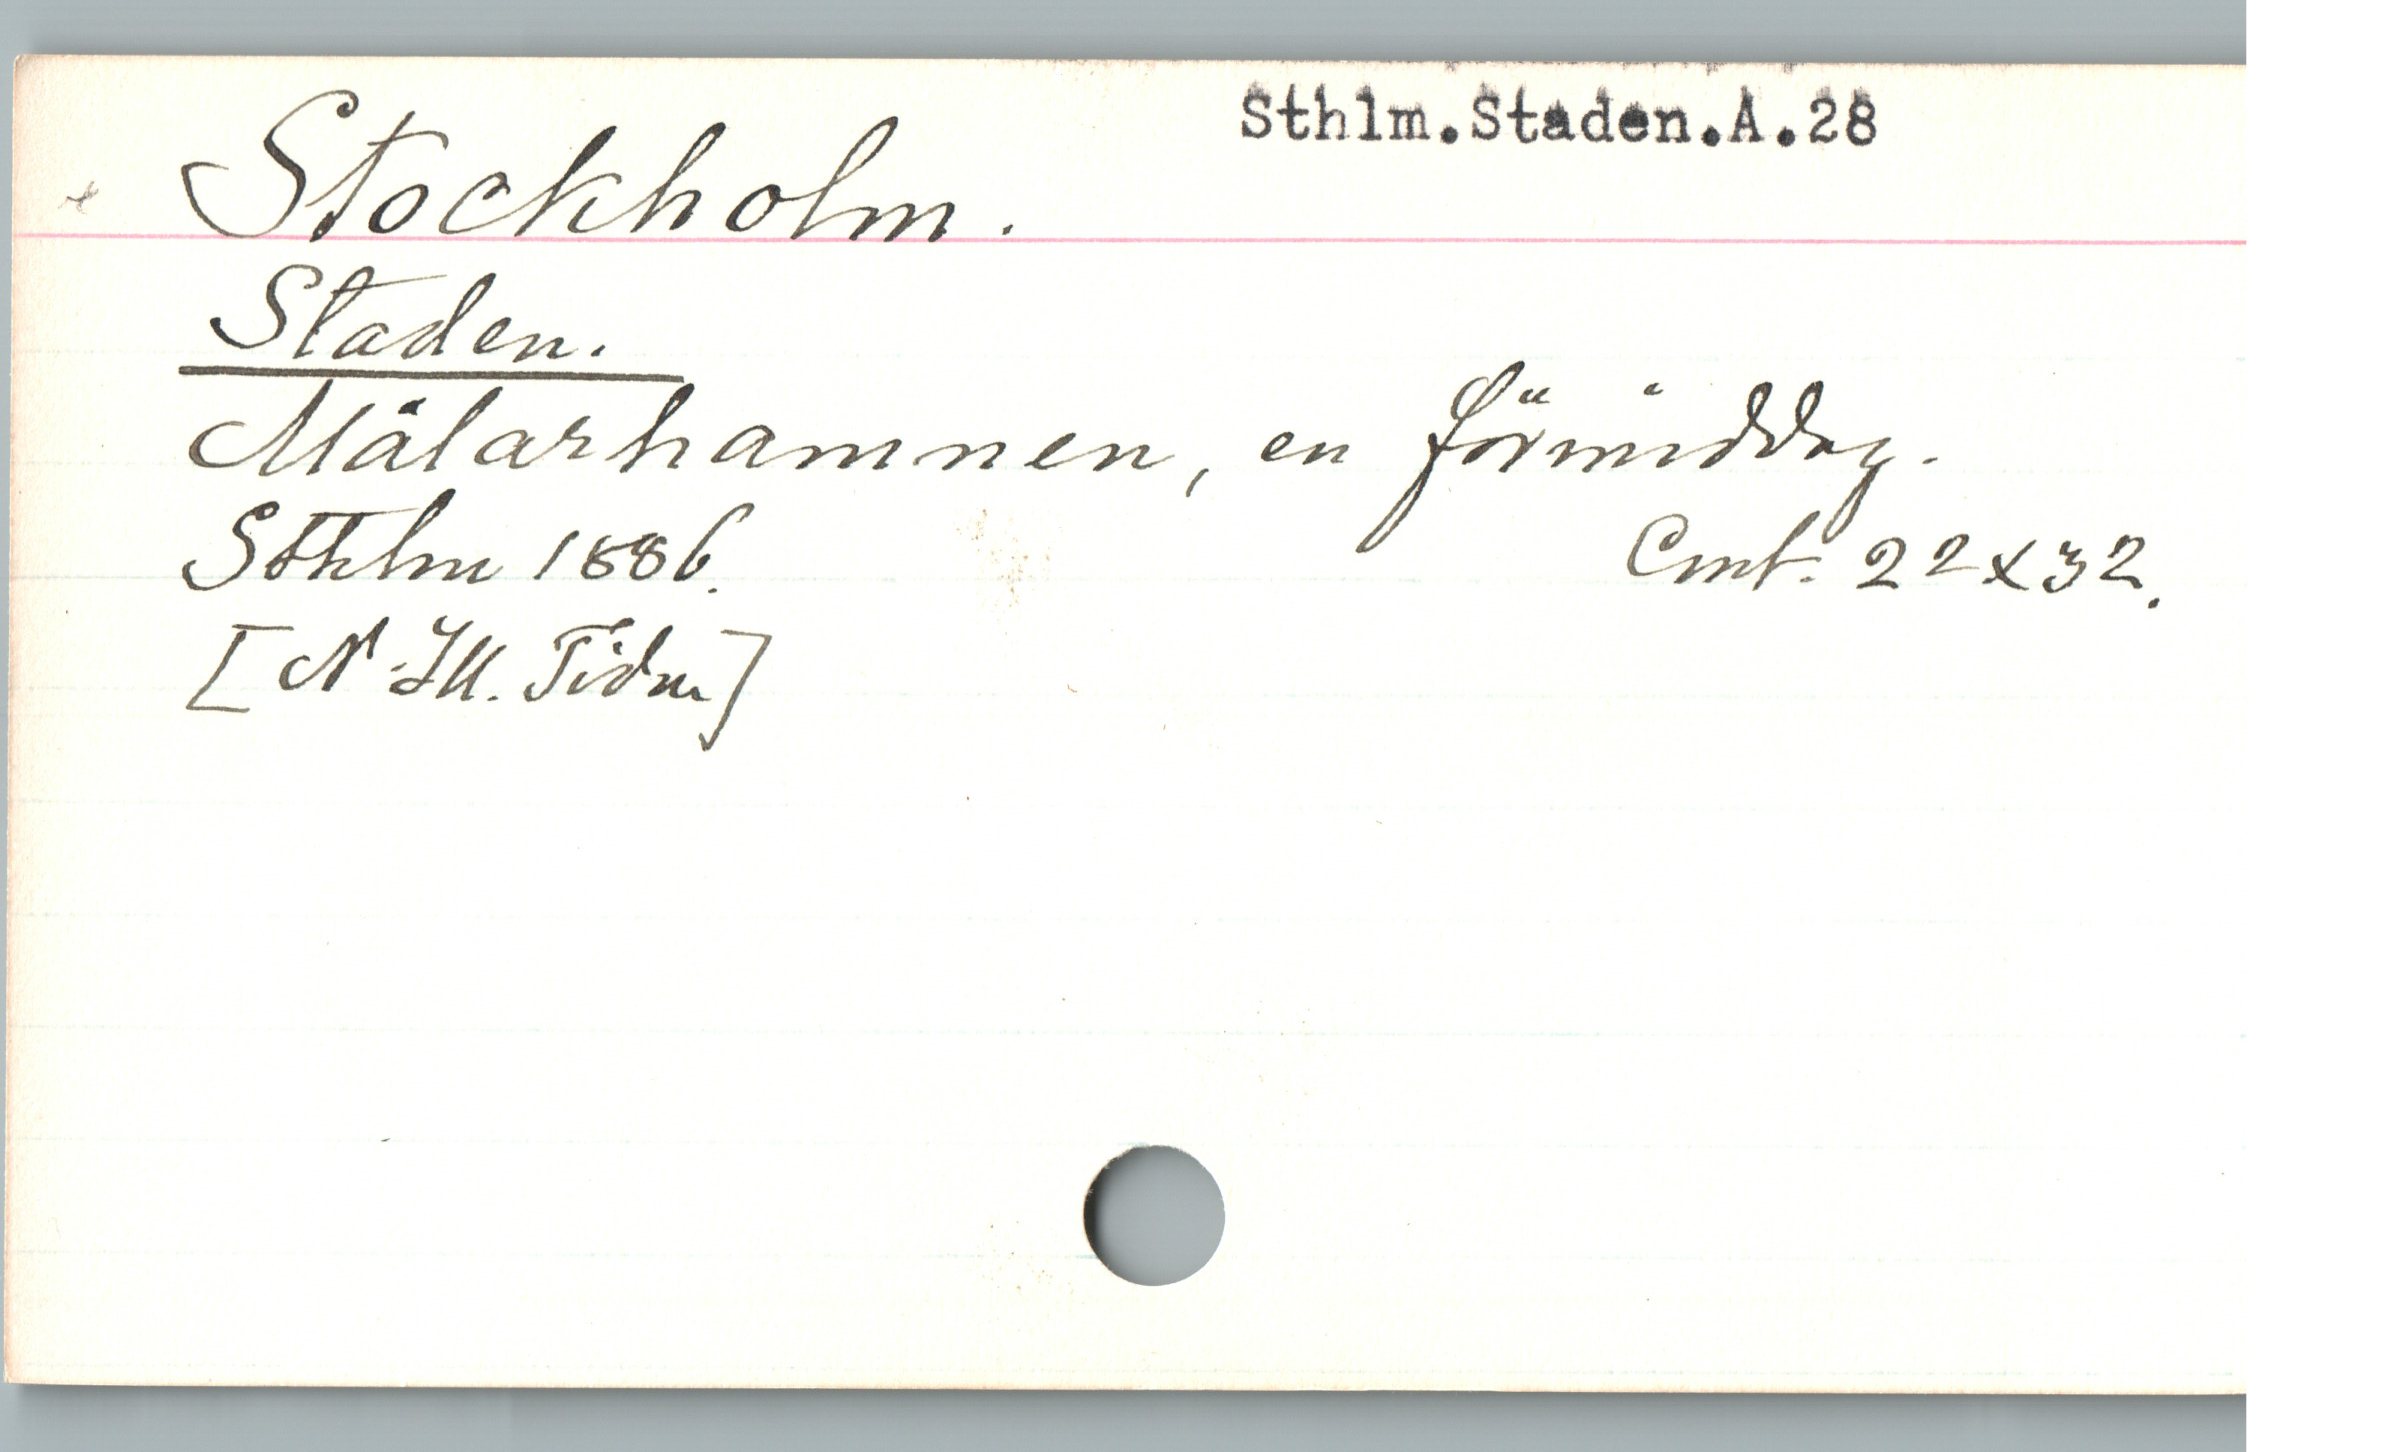 Sthlm.Staden.A.28
Stockholm.
Staden.
Mälarhamnen, en förmiddag.
Sthlm 1886.
Cmt. 22x32.
[N. Ill. Tidn]